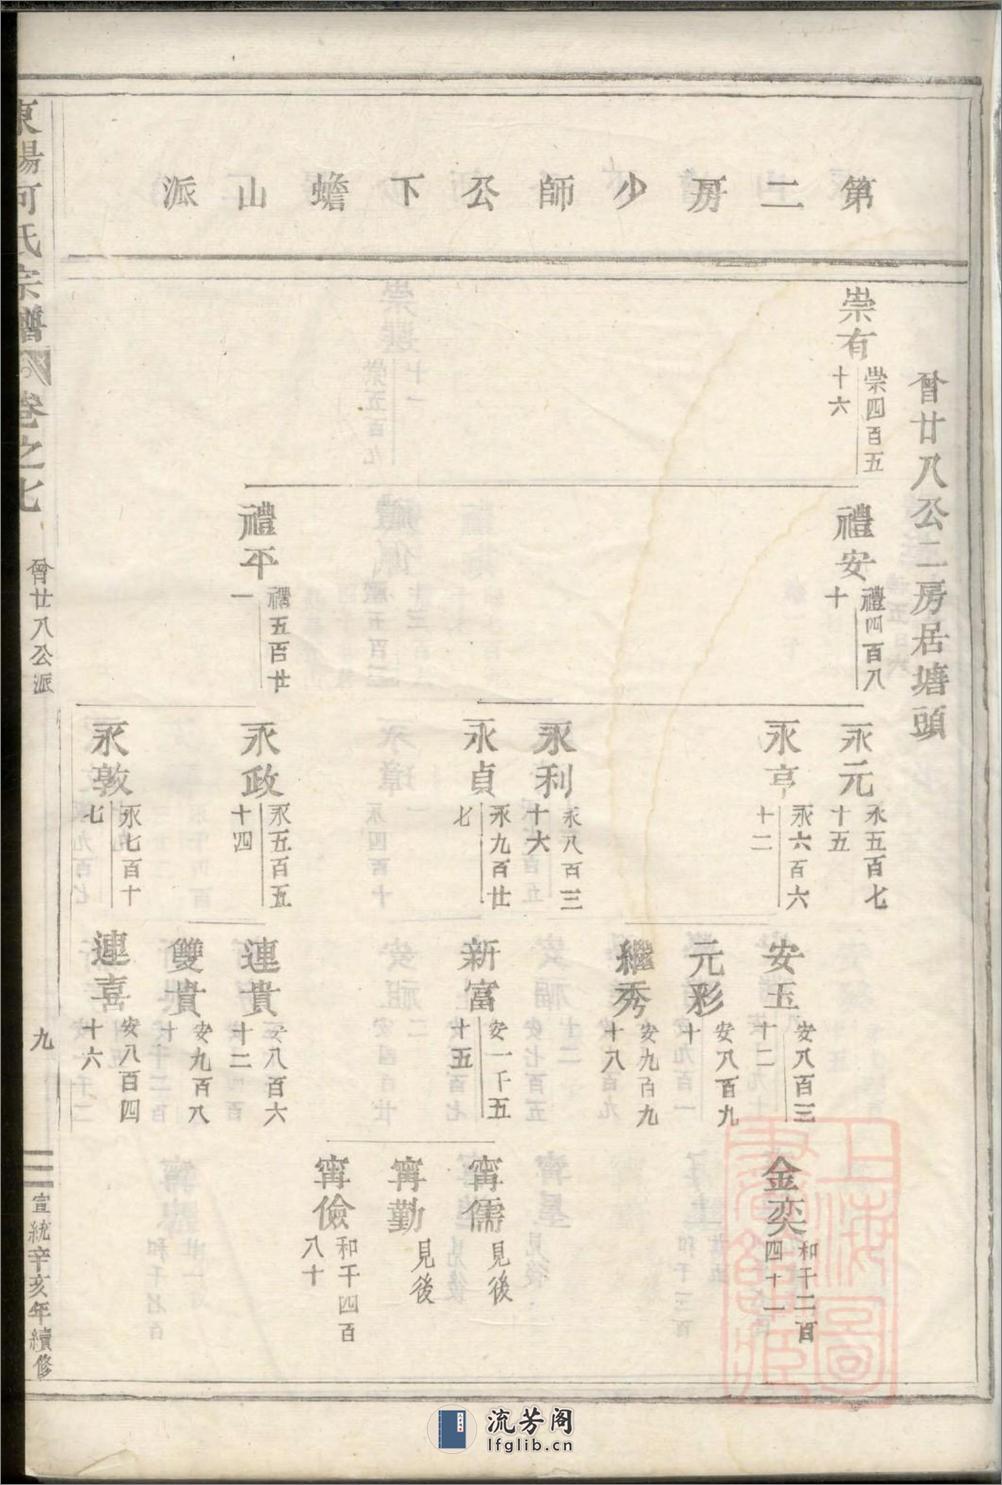 第二房少師公下蟾山派
曾廿八公二房居塘頭
崇有
崇四百五
十六
禮安
禮四百八
十
禮平
禮五百廿
一
永元
永五百七
十五
永亨
永六百六
十二
永利
永八百三
十六
永貞
永九百廿
七
永政
永五百五
十四
永敦
永七百十
七
安玉
安八百三
十二
元彩
安八百九
十
繼秀
安九百九
十八
新富
安一千五
十五
連貴
安八百六
十二
雙貴
安九百八
十
連喜
安八百四
十六
金奕
和千二百
四十一
甯儒
見後
甯勤
見後
甯儉
和千四百
八十
東陽何氏宗譜
卷之七
曾廿八公派
九
宣統辛亥年續修
上海圖書館藏
流芳阁
lfglib.cn